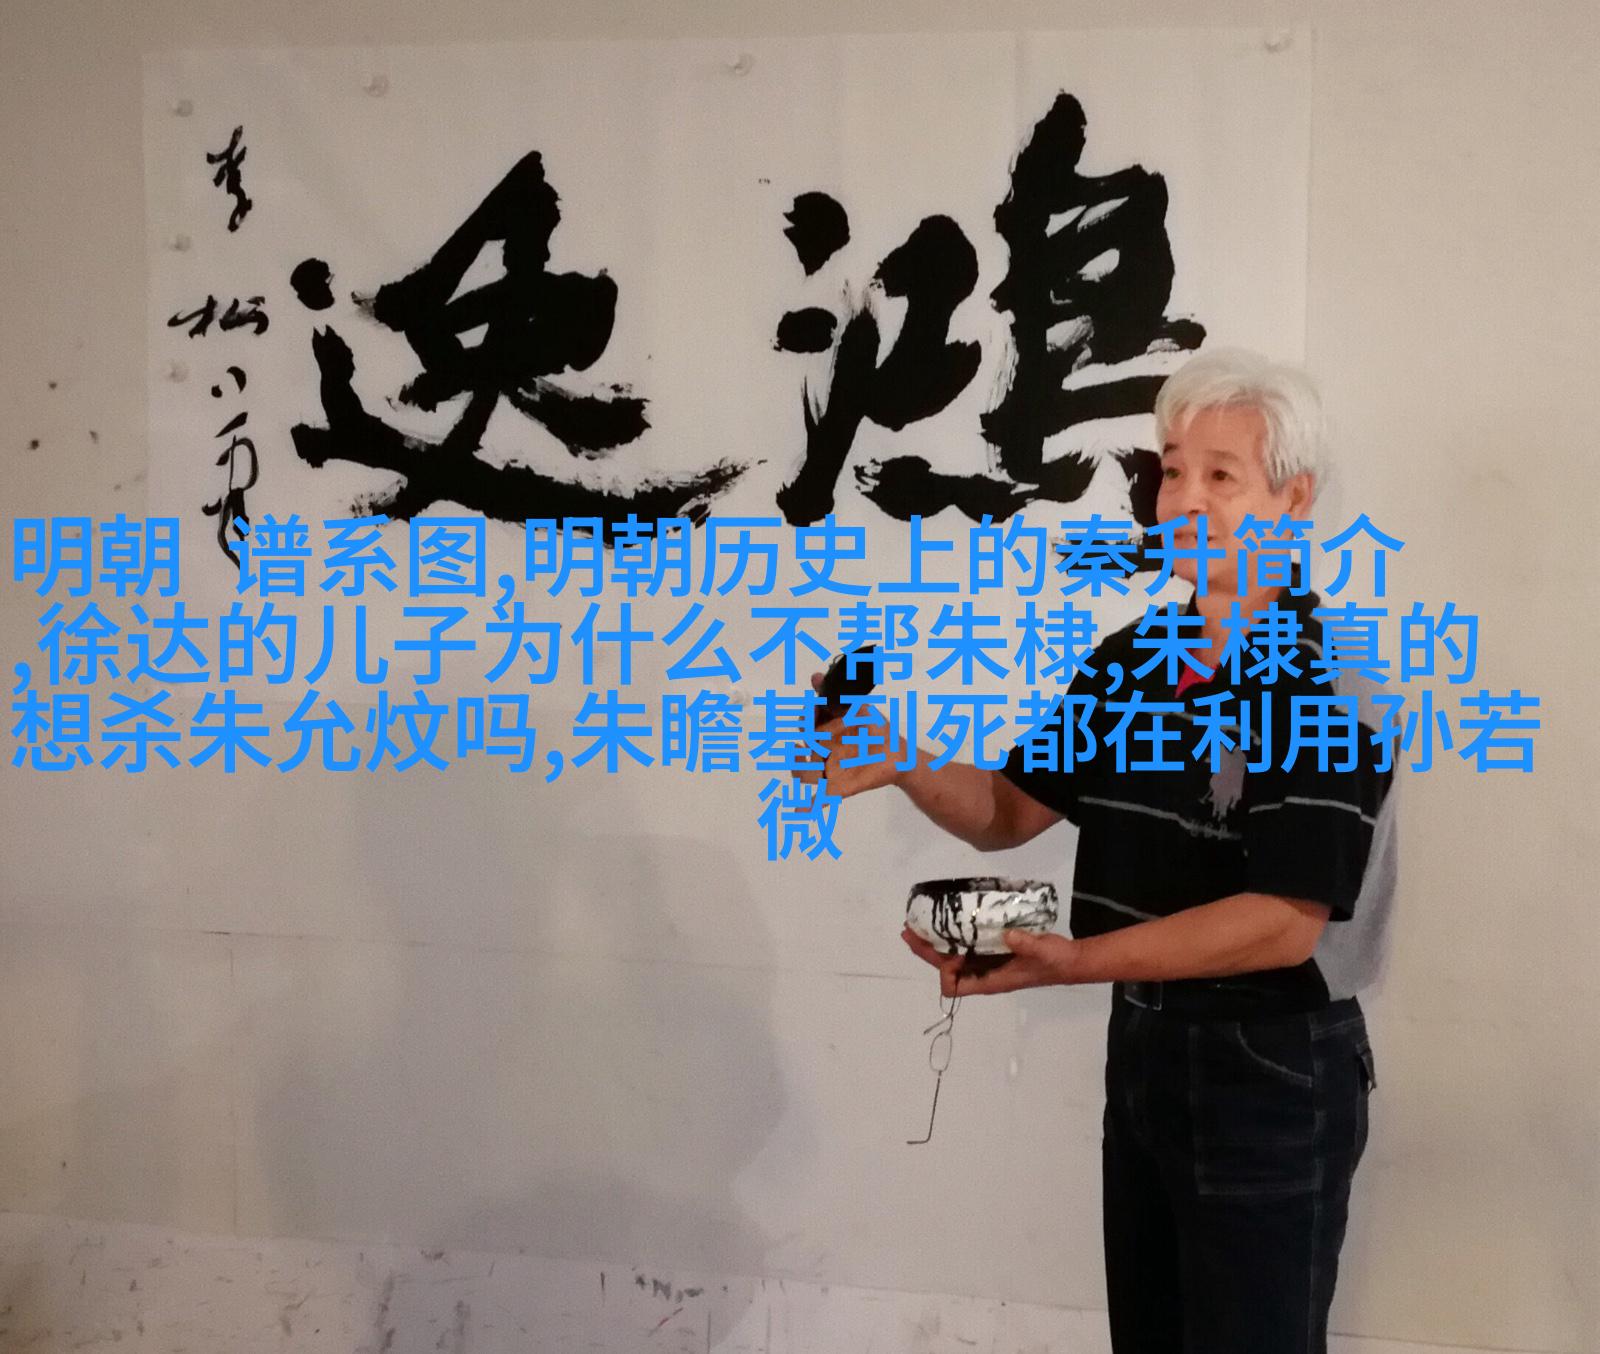 鸿逸
李松
明朝 谱系图,明朝历史上的秦升简介
,徐达的儿子为什么不帮朱棣,朱棣真的
想杀朱允炆吗,朱瞻基到死都在利用孙若
微